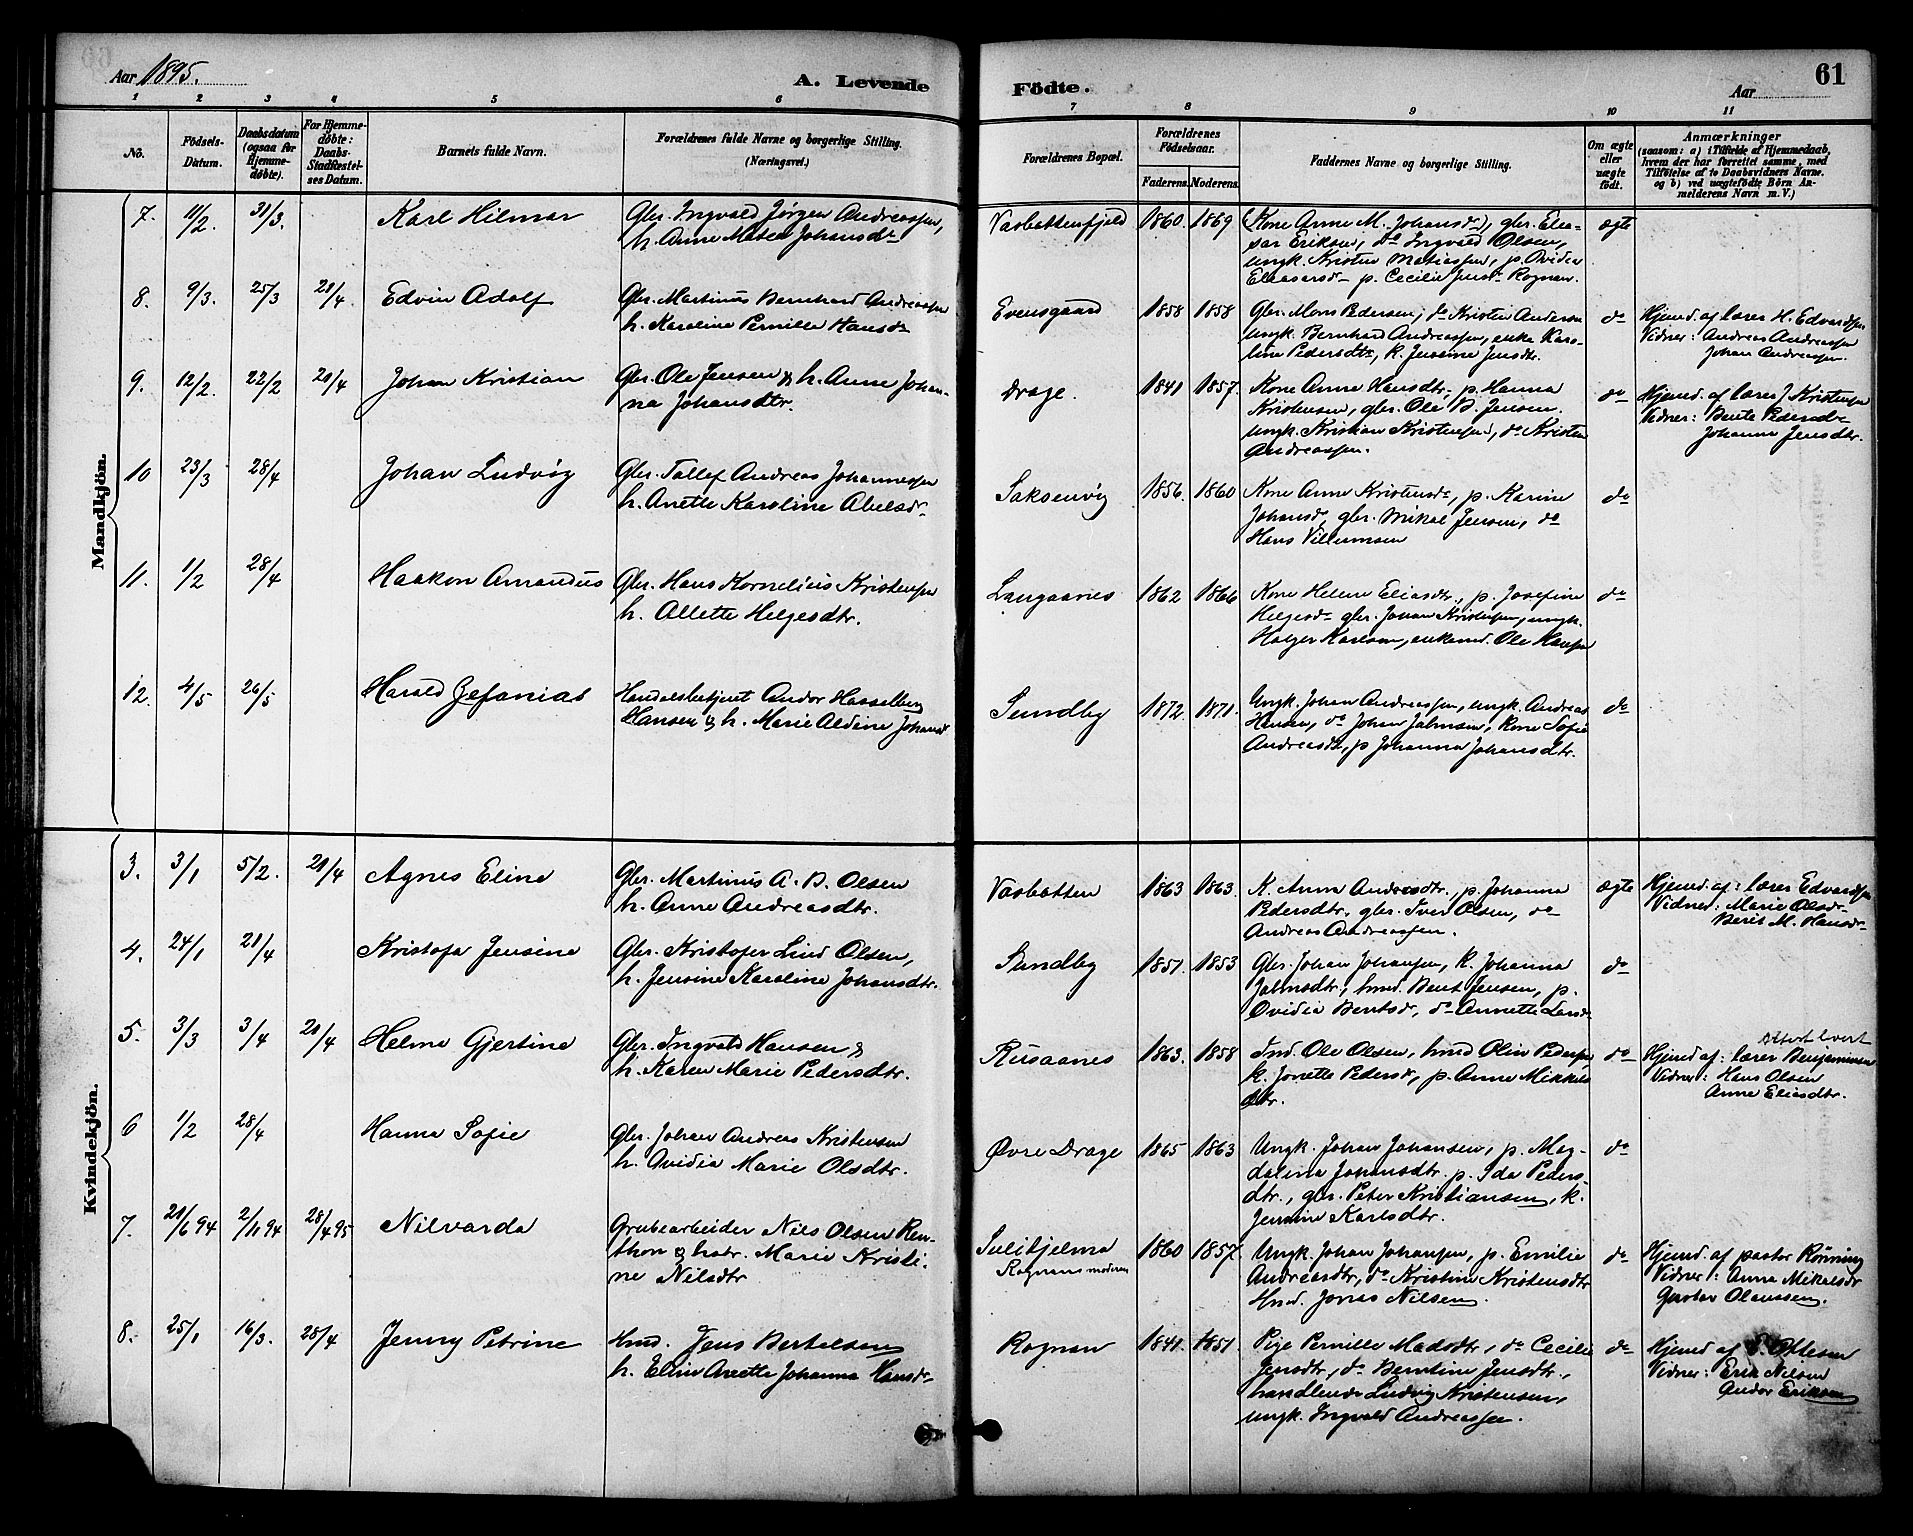 Aar 1895.
A. Levende
Födte.
Aar
61
1 2 3 4 5 6 7 8 9 10 11
No.
Födsels-
Datum.
Daabsdatum
(ogsaa for
Hjemme-
døbte).
For Hjemme-
døbte:
Daabs-
Stadfæstel-
ses Datum.
Barnets fulde Navn.
Forældrenes fulde Navne og borgerlige Stilling.
(Næringsvei.)
Forældrenes Bopæl.
Forældrenes
Födselsaar.
Faderens. Moderens.
Faddernes Navne og borgerlige Stilling.
Om ægte
eller
uægte
födt.
Anmærkninger
(saasom: a) i Tilfælde af Hjemmedaab,
hvem der har forrettet samme, med
Tilføielse af to Daabsvidners Navne.
og b) ved uægtefödte Börn An-
melderens Navn m. V.)
Mandkjön.
7. 11/2. 31/3. Karl Hilmar
Gbr. Ingvald Jørgen Andreassen,
h. Anne Matea Johansdr
Vasbottenfjeld 1860. 1869
(Kone Anne M. Johansd), gbr. Elea-
sar Eriksen, do Ingvald Olsen,
ungk. Kristen Matiassen, p. Ovidia
Eleasersdr p. Cecilie Jensdr Rognan.
ægte
8. 9/3. 25/3 21/4. Edvin Adolf
Gbr. Martinus Bernhard Andreassen
h. Karoline Pernille Hansdr
Evensgaard 1858 1858
Gbr. Mons Pedersen, do Kristen Andersen
ungk. Bernhard Andreassen, enke Karo-
line Pedersdtr, k. Jensine Jensdtr.
do
Hjemd. af lærer H. Edvardsen
Vidner: Andreas Andreassen
Johan Andreassen.
9. 12/2. 22/2 21/4 Johan Kristian
Gbr. Ole Jensen & h. Anne Johan-
na Johansdtr.
Drage. 1841 1857.
Kone Anne Hansdtr, p. Hanna
Kristensen, gbr. Ole B. Jensen.
ungk. Kristian Kristensen, do Kristen
Andreassen.
do
Hjemd. af lærer J. Kristensen
Vidner: Berit Pedersdr
Johanna Jensdtr.
10 23/3 28/4 Johan Ludvig
Gbr. Tollef Andreas Johannessen
h. Anette Karoline Abelsdr
Saksenvig 1856. 1860
Kone Anne Kristensdr, p. Karine
Johansd, gbr. Mikal Jensen, do
Hans Villumsen
do
11. 1/2 28/4 Haakon Amandus
Gbr. Hans Kornelius Kristensen
h. Allette Helgesdtr.
Langaanes 1862 1866
Kone Helene Eliasdtr., p. Josefine
Helgesdr gbr. Johan Kristensen, ungk.
Holger Karlsen, enkemd. Ole Hansen
do
12. 4/5 26/5 Harald Zefanias
Handelsbetjent Andor Hasselberg
Hansen & h. Marie Aldine Johansd
Sundby 1872. 1871.
Ungk. Johan Andreassen, ungk. Andreas
Hansen, do Johan Jalmsen, Kone Sofie
Andreasdr, p. Johanna Johansdtr.
do
Kvindekjön.
3. 3/1 5/2. 21/4 Agnes Eline
Gbr. Martinus A. B. Olsen
h. Anne Andreasdtr.
Vasbotten 1863 1863.
K. Anne Andreasdtr., p. Johanna
Pedersdtr. gbr. Iver Olsen, do
Andreas Andreassen.
ægte
Hjemd. af: lærer Edvardsen
Vidner: Marie Olsdr
Berit M. Hansdr
4. 24/1 21/4 Kristofa Jensine
Gbr. Kristofer Lind Olsen,
h. Jensine Karoline Johansdtr.
Sundby 1851. 1853
Gbr. Johan Johansen, k. Johanna
Jalmsdtr., hmd. Bent Jensen, p.
Ovidia Bentsdr, do Annette Larsdr
do
5. 3/3 3/4 21/4 Helene Gjertine
Gbr. Ingvald Hansen &
h. Karen Marie Pedersdtr.
Rusaanes 1863. 1858
Ind. Ole Olsen, hmd Olin Pedersen
k. Jonette Pedersd, p. Anne Mikkels
dtr.
do
Hjemd af: lærer Benjaminsen
Vidner: Hans Olsen
Anne Eliasdtr.
6 1/2 28/4 Hanna Sofie
Gbr. Johan Andreas Kristensen
h. Ovidia Marie Olsdtr.
Øvre Drage 1865 1863
Ungk. Johan Johansen, p. Mag-
dalena Johansdtr. p. Ida Peders-
dtr., gbr. Peter Kristiansen, k.
Jensine Karlsdtr.
do
7. 21/6 94 2/11 94 28/4 95 Nilvarda
Grubearbeider Nils Olsen Ren-
thon & hstr. Marie Kristi-
ne Nilsdtr
Sulitjelma
Rognan moderen
1860 1857.
Ungk. Johan Johansen, p. Emilie
Andreasdtr, do Kristine Kristensdtr
Hmd. Jonas Nilsen
do
Hjemd. af pastor Rønning
Vidner: Anna Mikalsdr
Gustav Olaussen.
8. 25/1 16/3. 28/4 Jenny Petrine
Hmd. Jens Bertelsen
h. Elen Anette Johanna Hansdr
Rognan 1841. 1851.
Pige Pernille Madsdtr, do Cecilie
Jensdtr, do Berntine Jensdtr.,
handlende Ludvig Kristensen,
ungk. Ingvald Andreassen.
do
Hjemd af Ottesen
Vidner: Erik Nilsen
Andor Eriksen